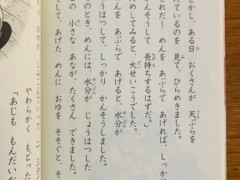 しかし、ある日 おくさんが 天ぷらを
あげているのを 見て、ひらめきました。
めんを あぶらで あげれば、しっか
かんそうして 長持ちするはずだ。」
めしてみると、大せいこうでした。
めんを あぶらで あげると、水分が
はつして、しっかり かんそうしました。
のとき、めんには、水分が じょうはつした
の 小さな あなが、たくさん できました。
して、あげた めんに おゆを そそぐと、そ
やわらかく もどった
「あじも もんだいな